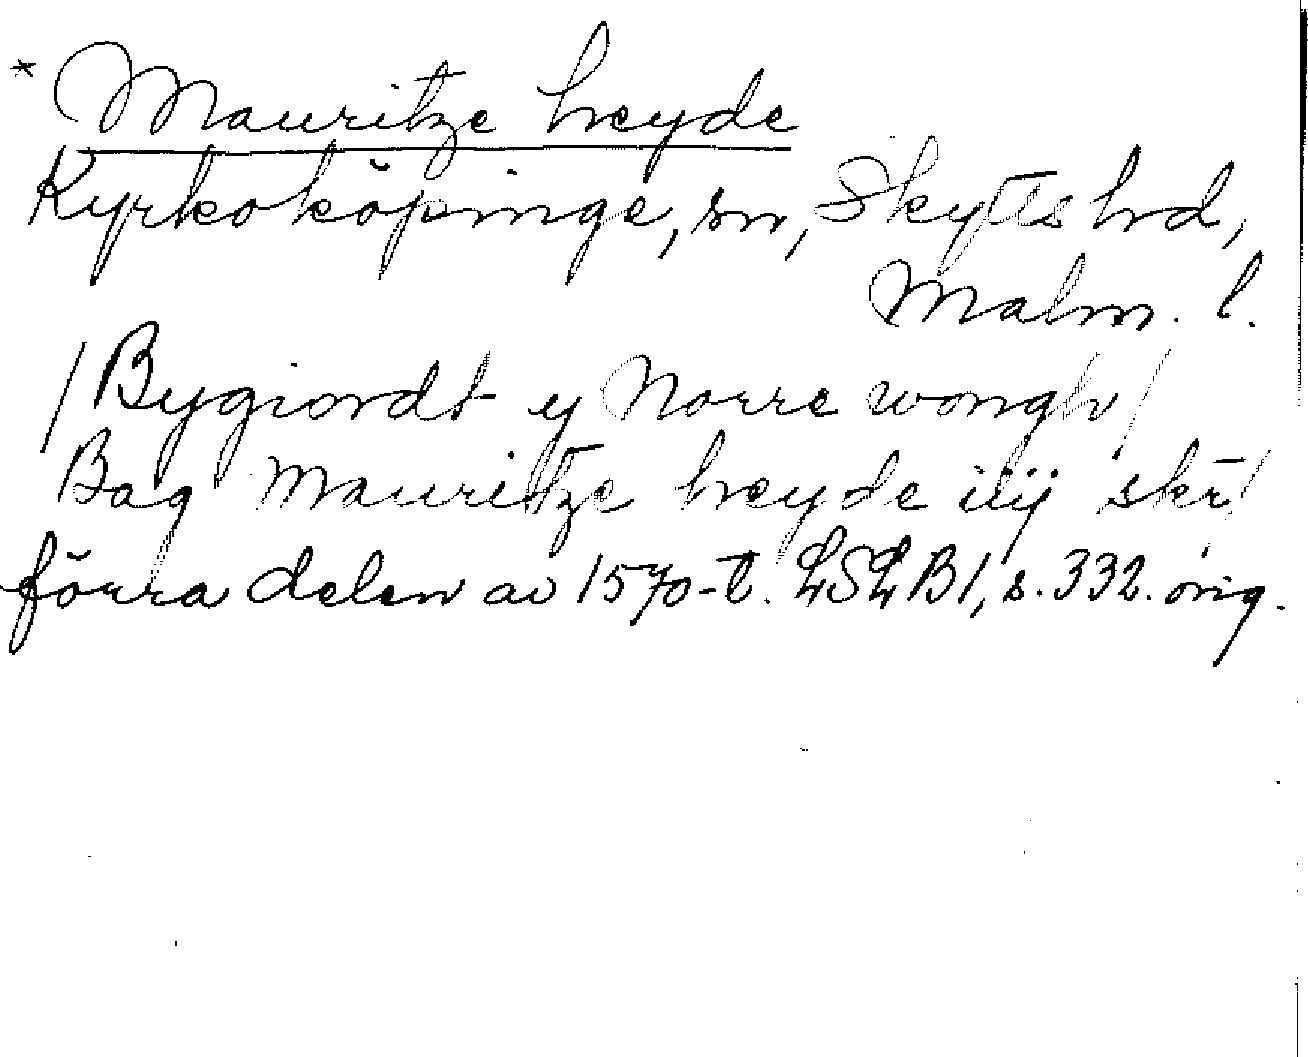 * Mauritze heyde
Kyrkoköpinge, sn, Skytts hd,
Malm. l.
/ Bygiordt y Norre wongh /
Bag Mauritze heyde iiij skr̄ /
förra delen av 1570-t. LSLB1, s. 332. orig.